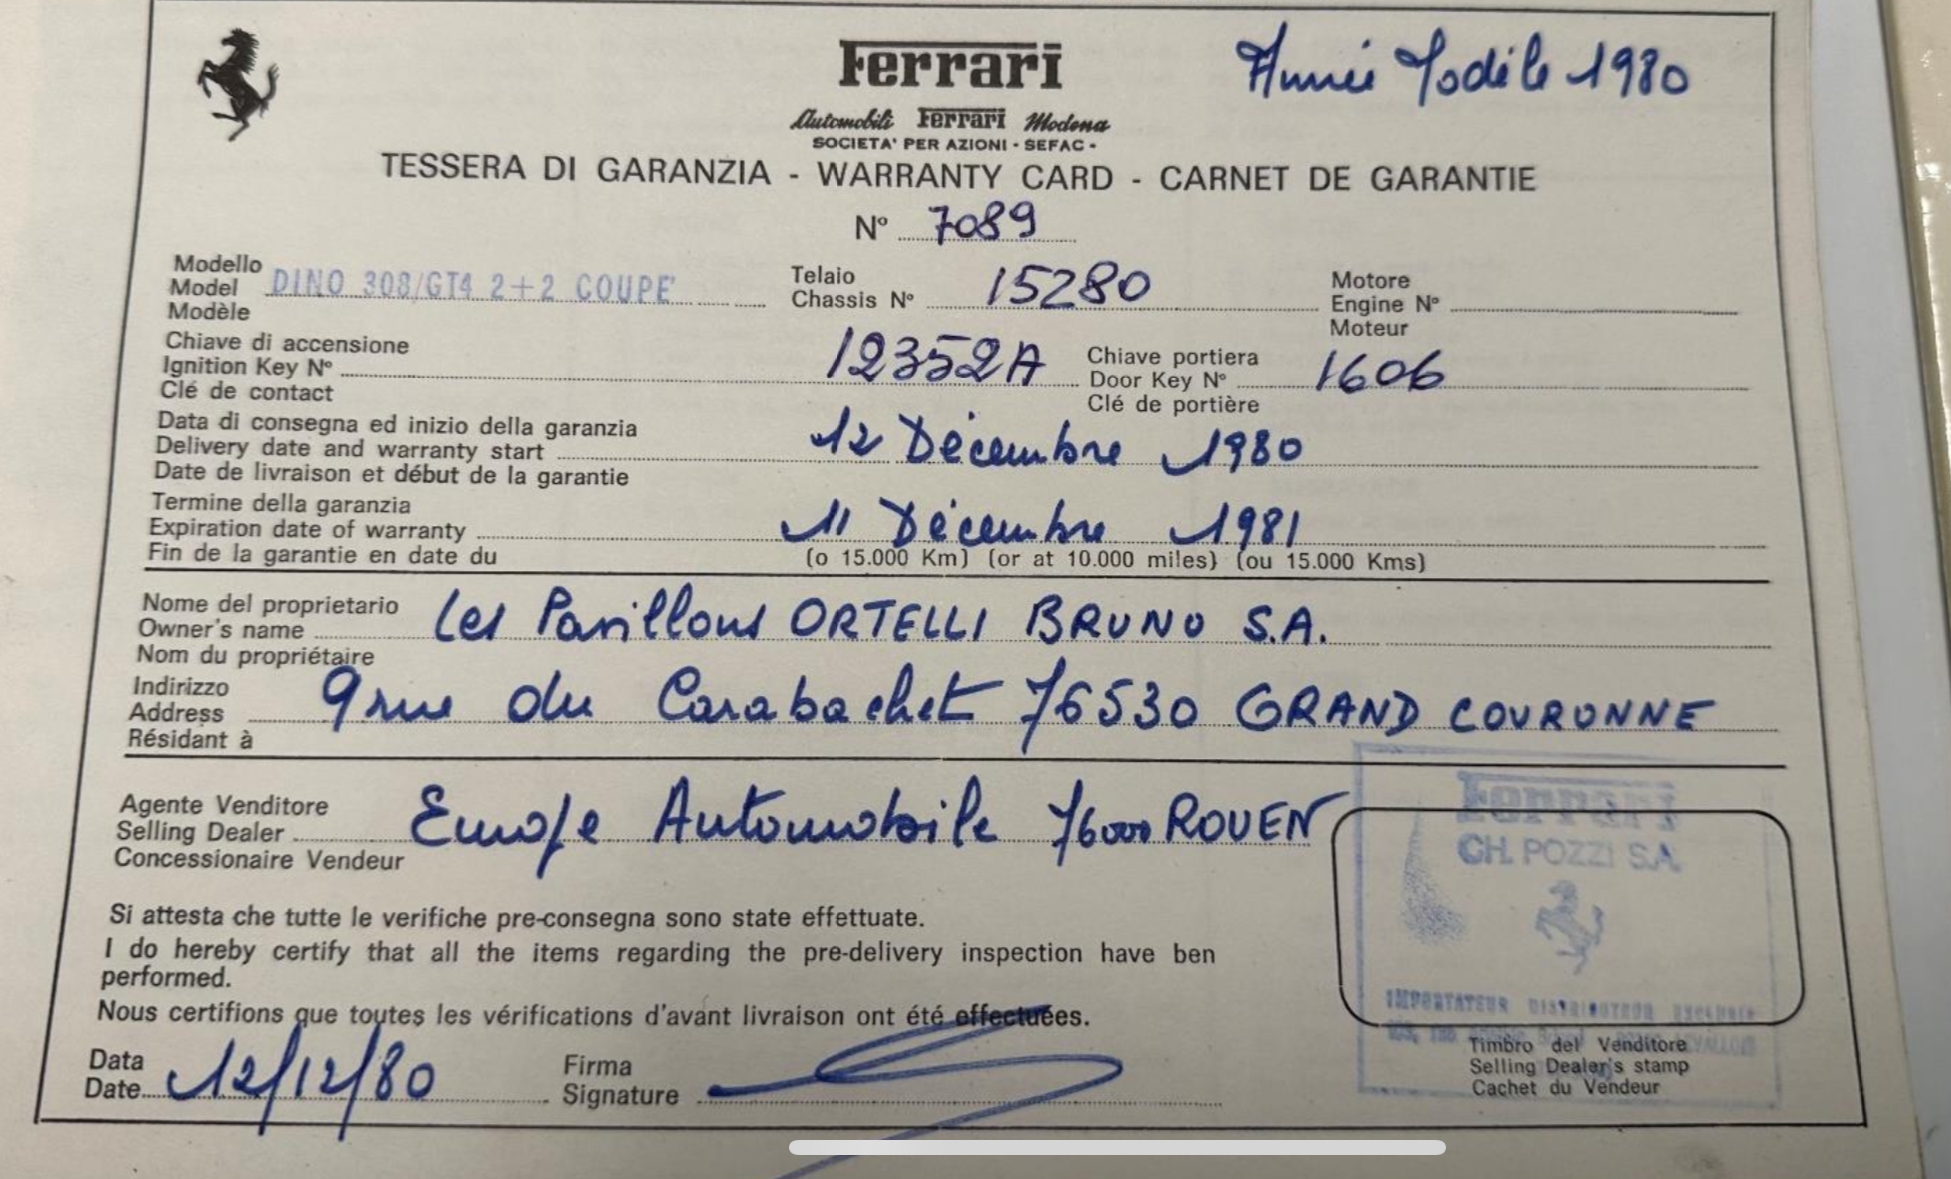 Ferrari
Année Modèle 1980
Automobili Ferrari Modena
SOCIETA' PER AZIONI - SEFAC -
TESSERA DI GARANZIA - WARRANTY CARD - CARNET DE GARANTIE
Nº 7089
Modello
Model DINO 308/GT4 2+2 COUPE'
Modèle
Telaio
Chassis Nº 15280
Motore
Engine Nº
Moteur
Chiave di accensione
Ignition Key Nº 12352A
Clé de contact
Chiave portiera
Door Key Nº 1606
Clé de portière
Data di consegna ed inizio della garanzia
Delivery date and warranty start 12 Décembre 1980
Date de livraison et début de la garantie
Termine della garanzia
Expiration date of warranty 11 Décembre 1981
Fin de la garantie en date du (o 15.000 Km) (or at 10.000 miles) (ou 15.000 Kms)
Nome del proprietario
Owner's name Les Pavillons ORTELLI BRUNO S.A.
Nom du propriétaire
Indirizzo
Address 9 rue du Carabachet 76530 GRAND COURONNE
Résidant à
Agente Venditore
Selling Dealer Europe Automobile 76000 ROUEN
Concessionaire Vendeur
Ferrari
CH. POZZI S.A.
IMPORTATEUR DISTRIBUTEUR EXCLUSIF
Si attesta che tutte le verifiche pre-consegna sono state effettuate.
I do hereby certify that all the items regarding the pre-delivery inspection have ben
performed.
Nous certifions que toutes les vérifications d'avant livraison ont été effectuées.
Data
Date 12/12/80
Firma
Signature
Timbro del Venditore
Selling Dealer's stamp
Cachet du Vendeur